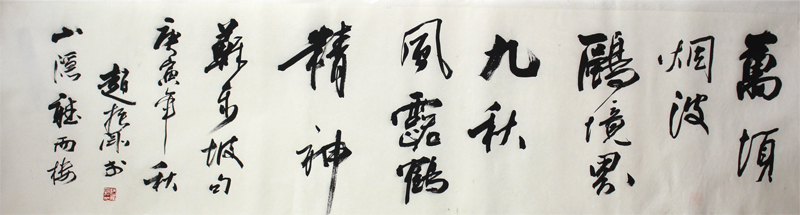 萬頃
烟波
鷗境界
九秋
風露鶴
精神
蘇東坡句
庚寅年秋
趙振
聽雨樓